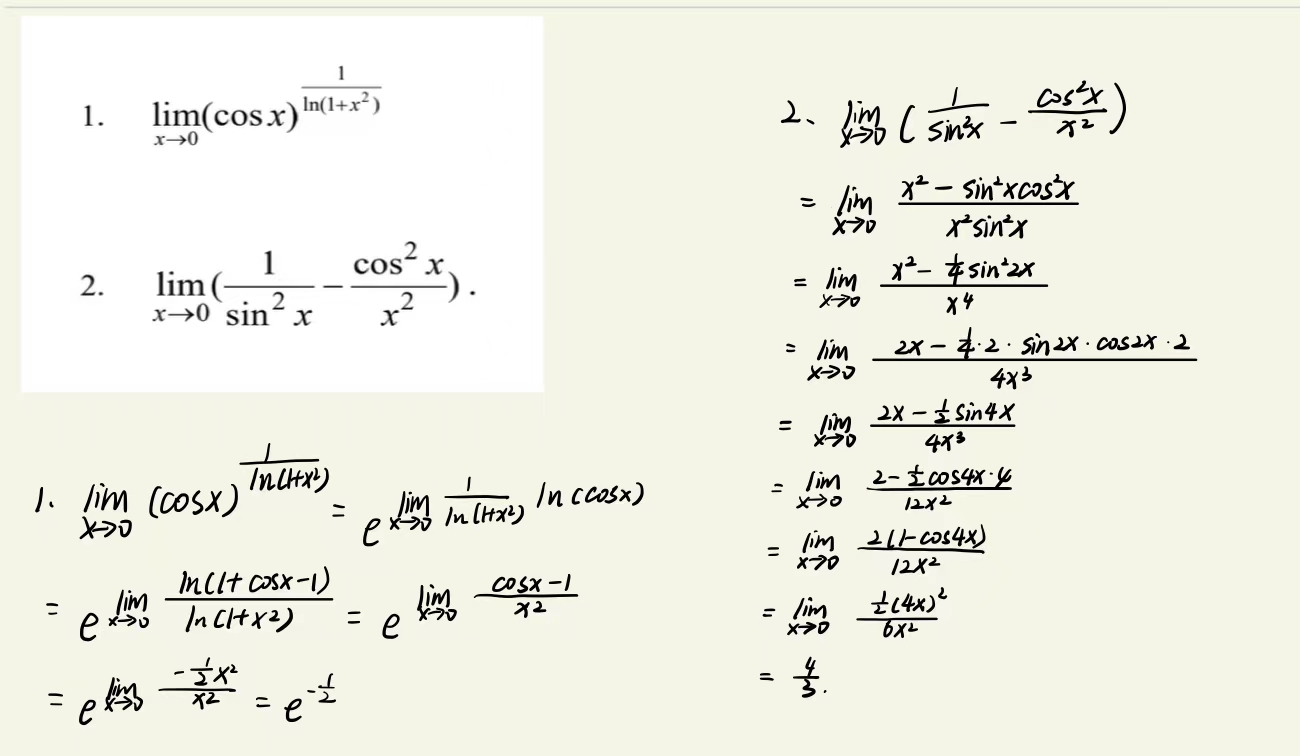 1. lim_{x→0} (cos x)^{1/ln(1+x²)}
2. lim_{x→0} (1/sin² x − cos² x/x²).
1、lim_{x→0} (cosx)^{1/ln(1+x²)} = e^{lim_{x→0} 1/ln(1+x²) ln(cosx)}
= e^{lim_{x→0} ln(1+cosx−1)/ln(1+x²)} = e^{lim_{x→0} (cosx−1)/x²}
= e^{lim_{x→0} (−½x²)/x²} = e^{−½}
2、lim_{x→0} (1/sin²x − cos²x/x²)
= lim_{x→0} (x² − sin²xcos²x)/(x²sin²x)
= lim_{x→0} (x² − ¼sin²2x)/x⁴
= lim_{x→0} (2x − ¼·2·sin2x·cos2x·2)/4x³
= lim_{x→0} (2x − ½sin4x)/4x³
= lim_{x→0} (2 − ½cos4x·4)/12x²
= lim_{x→0} 2(1−cos4x)/12x²
= lim_{x→0} ½(4x)²/6x²
= 4/3.